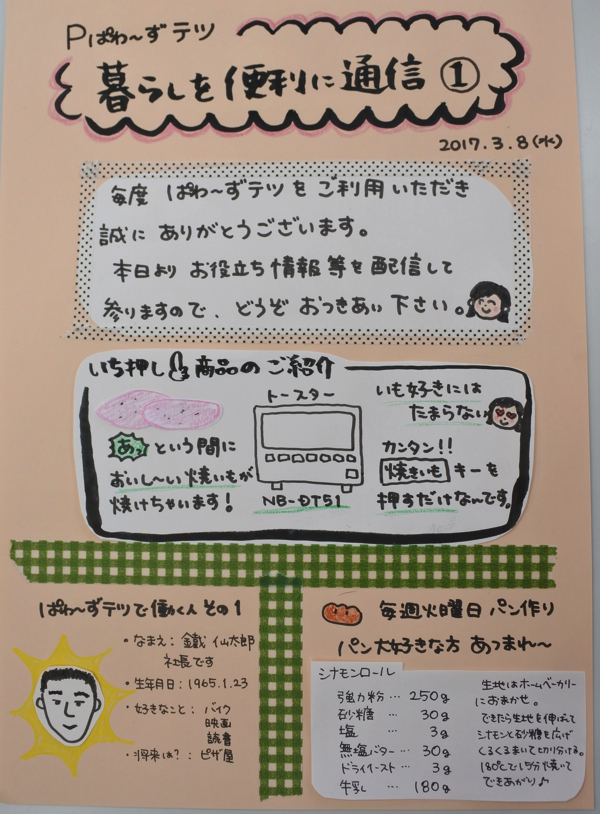 Pぱわ〜ずテツ
暮らしを便利に通信①
2017.3.8(水)
毎度 ぱわ〜ずテツをご利用いただき
誠にありがとうございます。
本日より お役立ち情報等を配信して
参りますので、どうぞ おつきあい下さい。
いち押し商品のご紹介
トースター
いも好きには
たまらない
あっという間に
おいし〜い焼いもが
焼けちゃいます!
NB-DT51
カンタン!!
焼きいも キーを
押すだけなんです。
ぱわ〜ずテツで働く人 その1
・なまえ: 鐵 仙太郎
社長です
・生年月日: 1965.1.23
・好きなこと: バイク
映画
読書
・将来は?: ピザ屋
毎週火曜日 パン作り
パン大好きな方 あつまれ〜
シナモンロール
強力粉 … 250g
砂糖 … 30g
塩 … 3g
無塩バター … 30g
ドライイースト … 3g
牛乳 … 180g
生地はホームベーカリー
におまかせ。
できたら生地を伸ばして
シナモンと砂糖を広げ
くるくるまいて切り分ける。
180℃で15分焼いて
できあがり♪